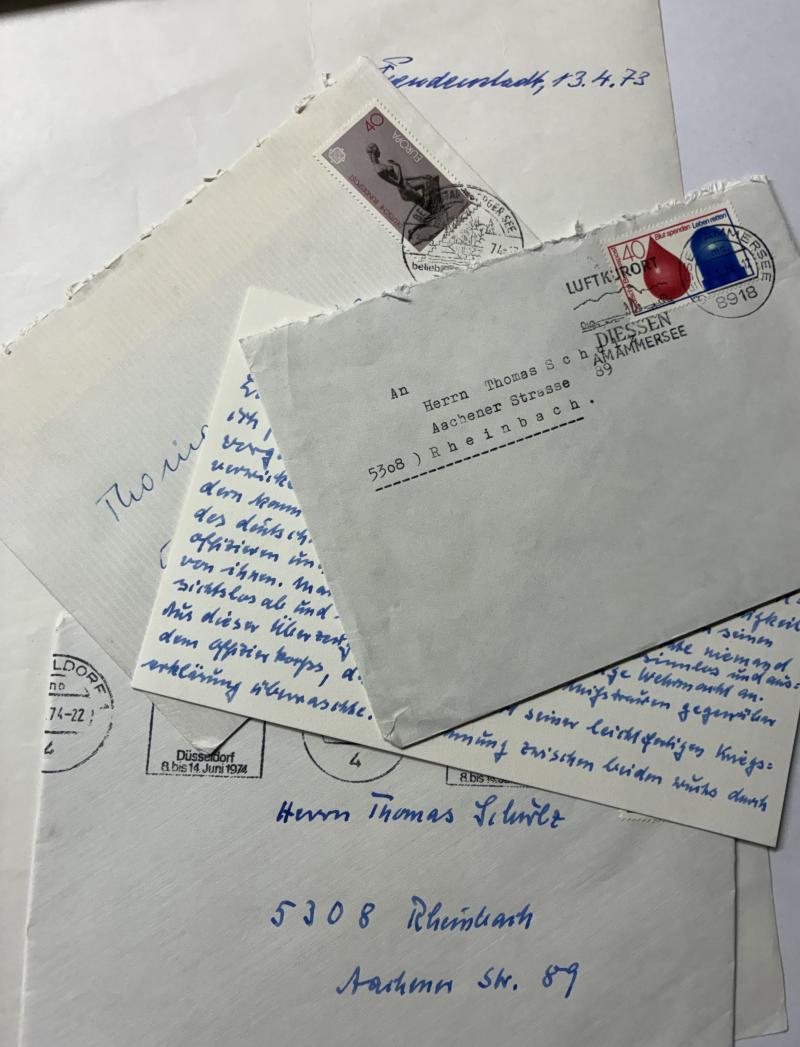 Freudenstadt, 13.4.73
40
EUROPA
DEUTSCHE BUNDESPOST
GER SEE
74-
belieb
40
Blut spenden Leben retten
AMMERSEE
8918
LUFTKURORT
DIESSEN
AM AMMERSEE
An
Herrn Thomas Sch
Aachener Strasse 89
5308 ) Rheinbach.
Thoma
ich,
verwick
dern kann
des deutsch
Offizieren un
von ihnen. Ma
sichtslos ab und
Aus dieser Überzeug
dem Offizierkorps, d
erklärung überraschte.
igkeit
seinen
te niemand
sinnlos und aus=
ge Wehrmacht an.
Mißtrauen gegenüber
seiner leichtfertigen Kriegs=
nung zwischen beiden wuchs durch
LDORF 1
74-22
4
Düsseldorf
8. bis 14. Juni 1974
4
8. bis
Herrn Thomas Schulz
5308 Rheinbach
Aachener Str. 89